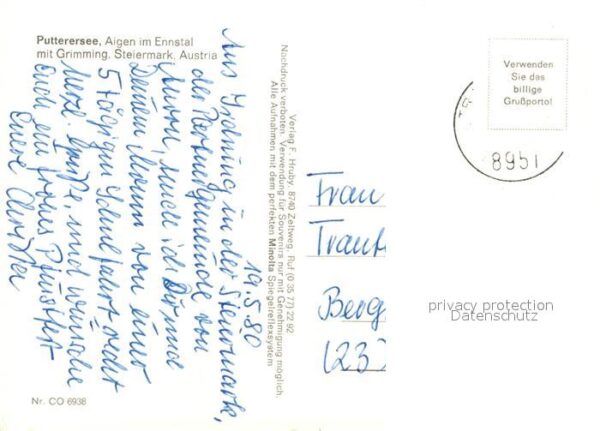 Putterersee, Aigen im Ennstal
mit Grimming, Steiermark, Austria
19.5.80
Aus Irdning in der Steiermark,
der Partnergemeinde von
sende ich Dir und
Deinem Mann von einer
5 tägigen Schulfahrt recht
herzl. Grüße und wünsche
euch ein frohes Pfingstfest
Eure
Nr. CO 6938
Verlag F. Hruby, 8740 Zeltweg, Ruf (0 35 77) 22 92
Nachdruck verboten. Verwendung für Souvenirs nur mit Genehmigung möglich.
Alle Aufnahmen mit dem perfekten Minolta Spiegelreflexsystem
Verwenden
Sie das
billige
Grußporto!
8951
Frau
Traut
Berg
privacy protection
Datenschutz